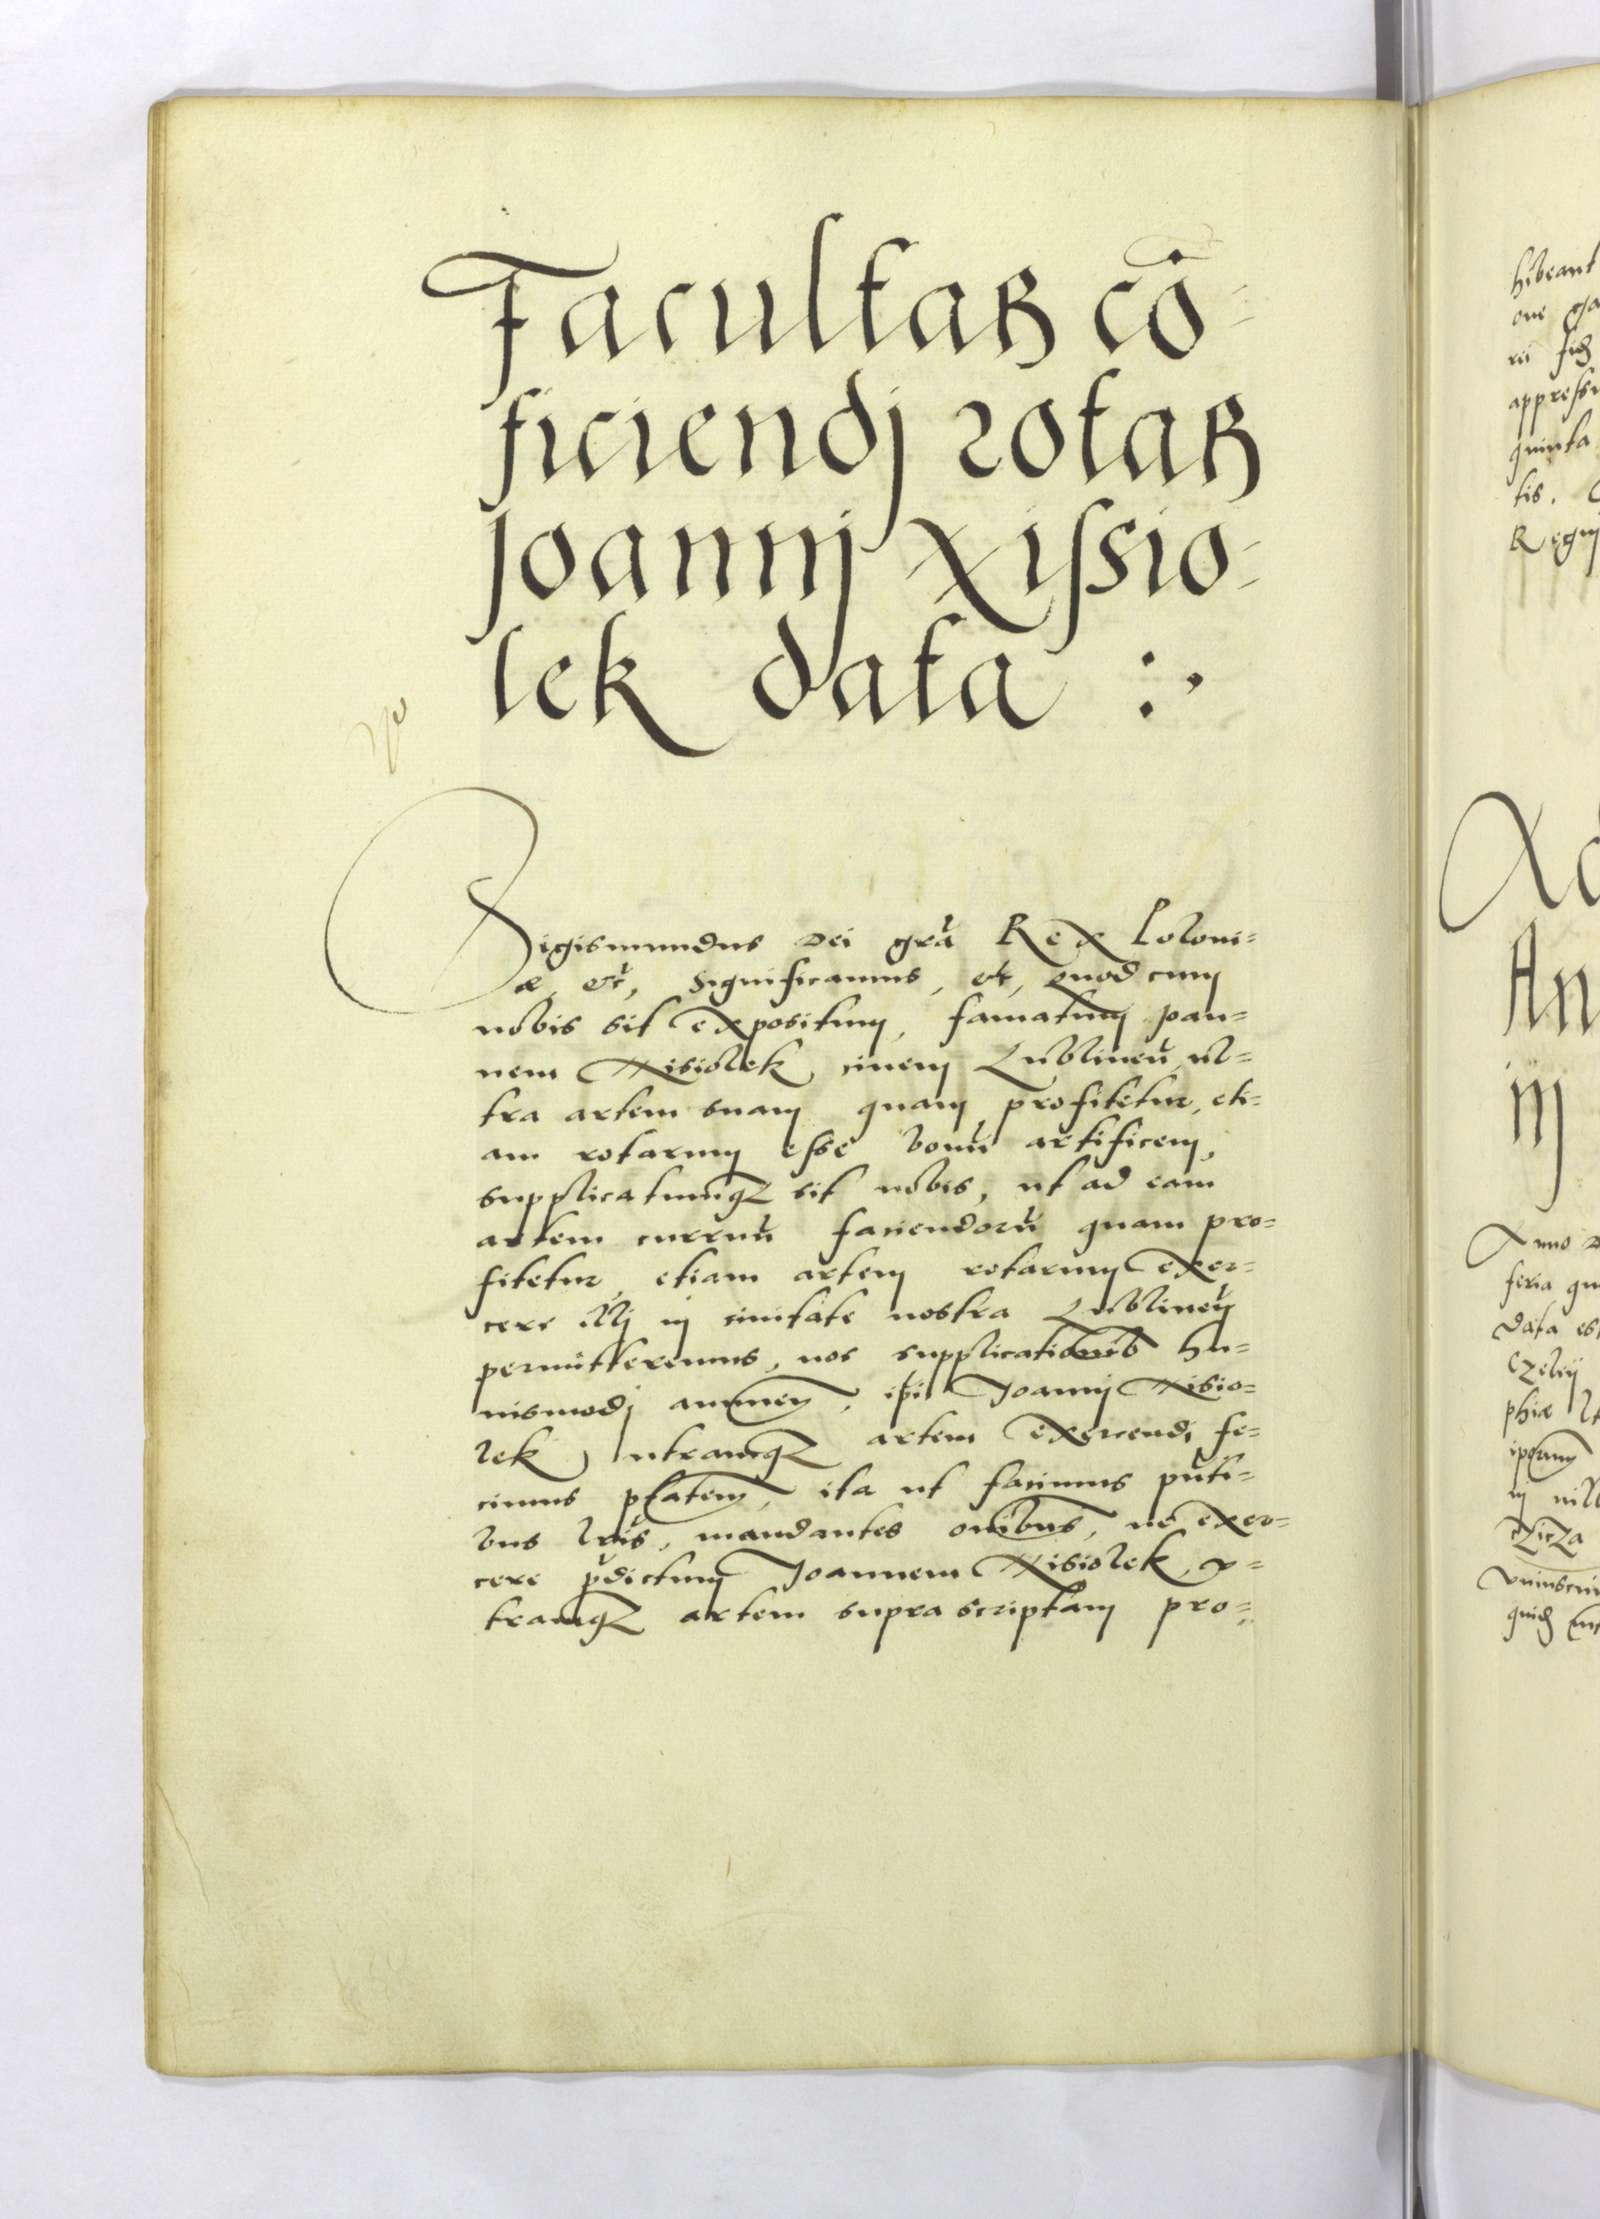 Facultas cō-
ficiendj rotas
Joannj Xissio-
lek data :.
Sigismundus Dei gr̄a Rex Poloni-
æ, etc̄, Significamus, etc, quod cum
nobis sit expositum, famatum Joan-
nem Xisiolek, ciuem Lublineñ, ul-
tra artem suam quam profitetur, eti-
am rotarum esse bonū artificem,
supplicatumq3 sit nobis, ut ad eam
artem curruū faciendorū quam pro-
fitetur, etiam artem rotarum exer-
cere illj in ciuitate nostra Lublineñ
permitteremus, nos supplicationib hu-
iusmodj annuen, ip̄i Joannj Xisio-
lek utramq3 artem exercendi fe-
cimus p̄tatem, ita ut facimus pn̄ti-
bus lr̄is, mandantes om̄ibus, ne exer-
cere p̄dictum Joannem Xisiolek, v-
tramq3 artem suprascriptam pro-
hibeant
appress
quinta
tis.
Regnj
An
Anno D
feria qu
Data es